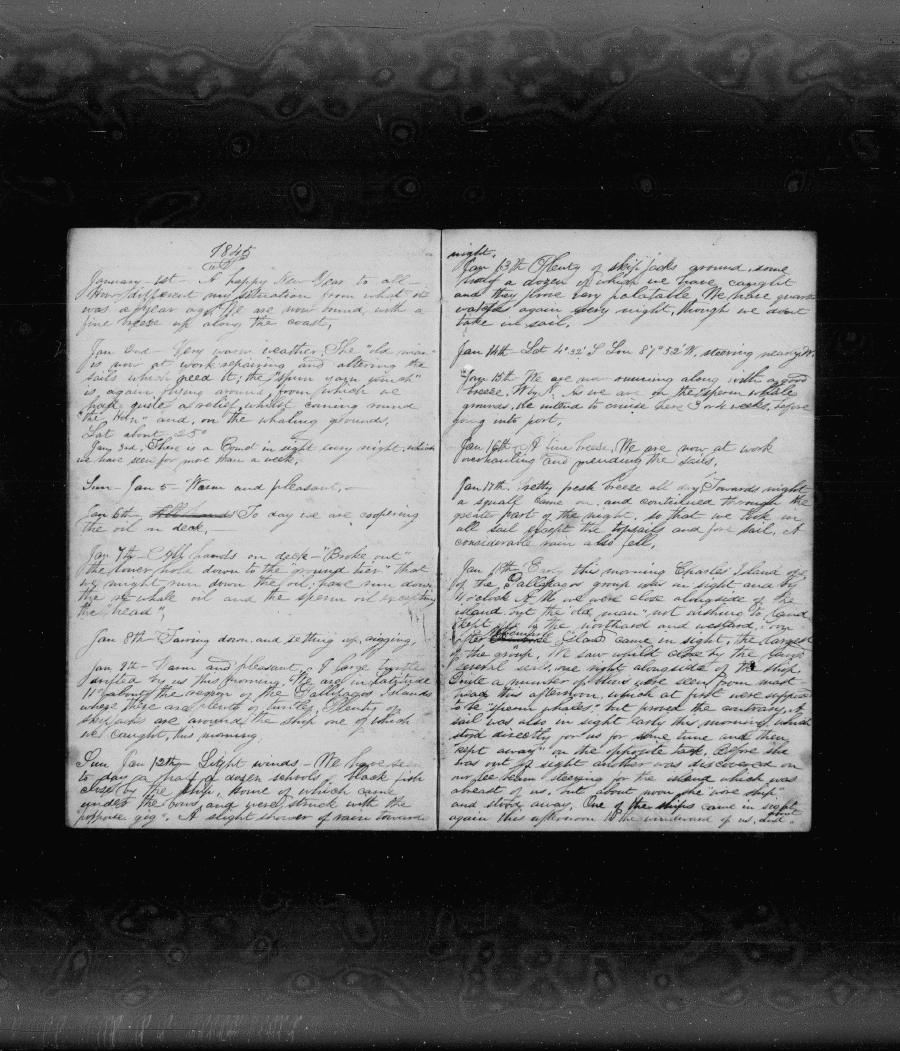 1845
January 1st - A happy New Year to all -
How different my situation from what it
was a year ago. We are now bound, with a
fine breeze up along the coast.
Jan 2nd - Very warm weather. The "old man"
is now at work repairing and altering the
sails which need it; the "spun yarn winch"
is again going around, from which we
had quite a relief whilst coming round
"the Horn" and, on the whaling grounds.
Lat about 25°
Jany 3rd. There is a Comet in sight every night, which
we have seen for more than a week.
Sun - Jan 5 - Warm and pleasant. -
Jan 6th - To day we are coopering
the oil in deck.
Jan 7th - All hands on deck - "Broke out"
the lower hole down to the "ground tier" that
we might run down the oil; have run down
the whale oil and the sperm oil excepting
the "head".
Jan 8th - Taring down and setting up rigging.
Jan 9th - Warm and pleasant. A large turtle
by us this morning. We are in latitude
11° about the region of the Gallipagos Islands
where there are plenty of turtles. Plenty of
skipjacks are around the ship one of which
we caught, this morning.
Sun. Jan 12th - Light winds - We have seen
to day a half a dozen schools of black fish
close by the ship, some of which came
under the bows and were struck with the
"porpose gig". A slight shower of rain toward
night.
Jan 13th Plenty of skipjacks around, some
half a dozen of which we have caught
and they prove very palatable. We have quarter
watches again every night, though we dont
take in sail.
Jan 14th - Lat 4°32' S Lon 87°32' W. steering nearly W.
Jan 15th We are now running along with a good
breeze, W by N. As we are on the sperm whale
grounds. We intend to cruise here 3 or 4 weeks, before
going into port.
Jan 16th - A fine breeze. We are now at work
overhauling and mending the sails.
Jan 17th. Pretty fresh breeze all day. Towards night
a squall came on and continued through the
greater part of the night, so that we took in
all sail except the topsails and fore sail. A
considerable rain also fell.
Jan 18th Early this morning Charles Island one
of the Gallipagos group was in sight and by
o'clock A.M. we were close alongside of the
island but the "old man" not wishing to land
kept off to the northard and westard; soon
the Albemarle Island came in sight, the largest
of the group. We saw whilst close by the land
several seals, one right alongside of the ship.
Quite a number of others were seen from mast-
head this afternoon, which at first were supposed
to be "sperm whales" but proved the contrary. A
sail was also in sight early this morning which
stood directly for us for some time and then
"kept away" on the opposite tack. Before she
was out of sight another was discovered on
our lee beam steering for the island which was
abreast of us, but about noon she "wore ship"
and stood away. One of the ships came in sight
again this afternoon to the windward of us, but about